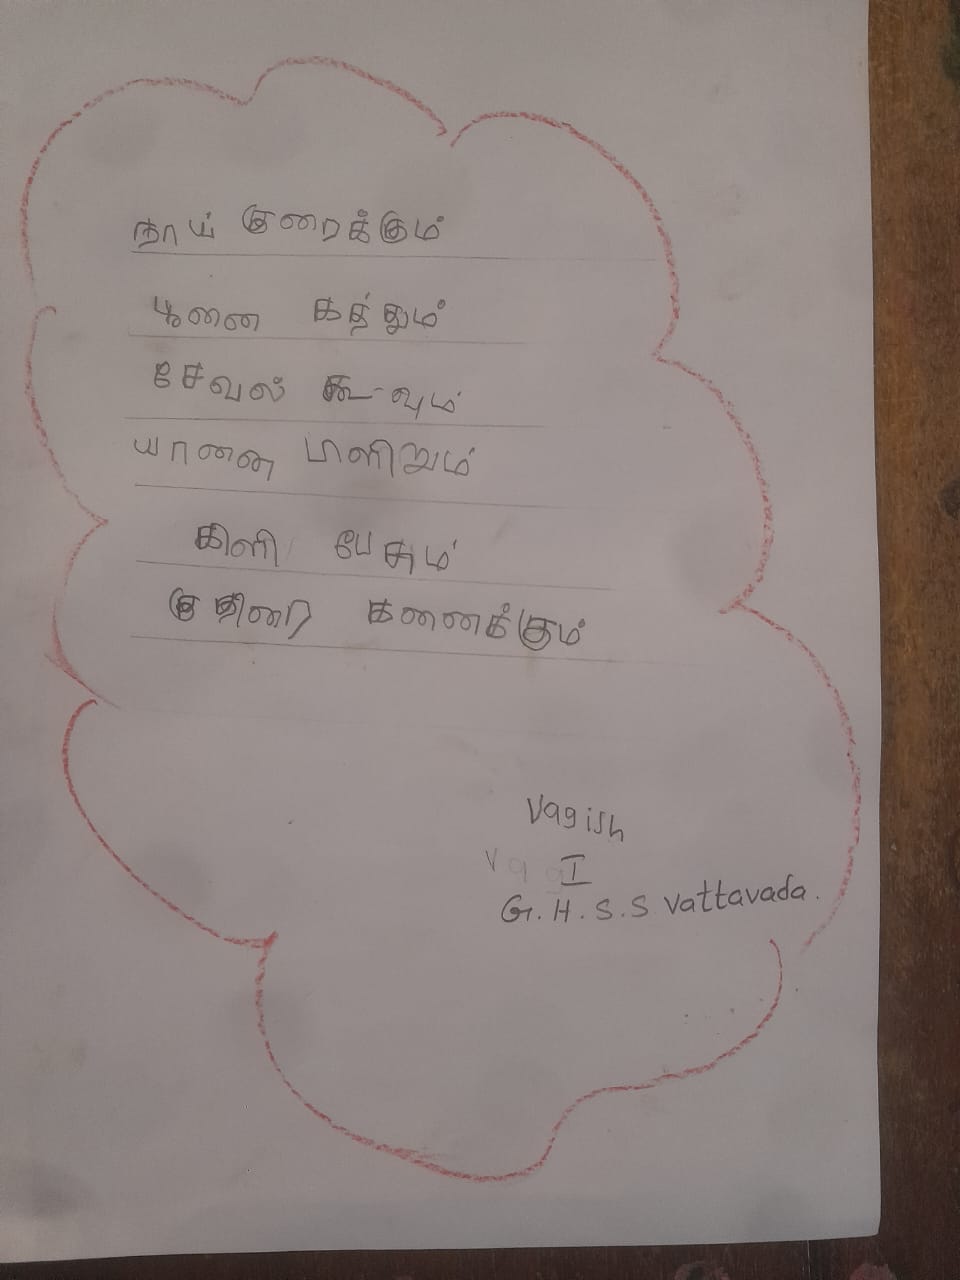 நாய் குரைக்கும்
பூனை கத்தும்
சேவல் கூவும்
யானை பிளிறும்
கிளி பேசும்
குதிரை கனைக்கும்
Vagish
I
G.H.S.S Vattavada.